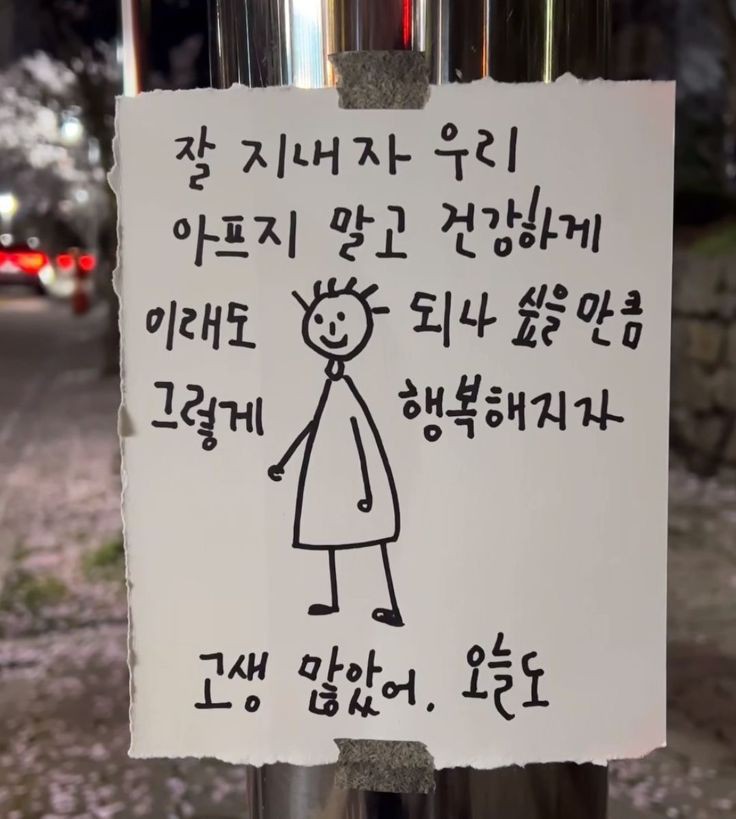 잘 지내자 우리
아프지 말고 건강하게
이래도 되나 싶을 만큼
그렇게 행복해지자
고생 많았어. 오늘도